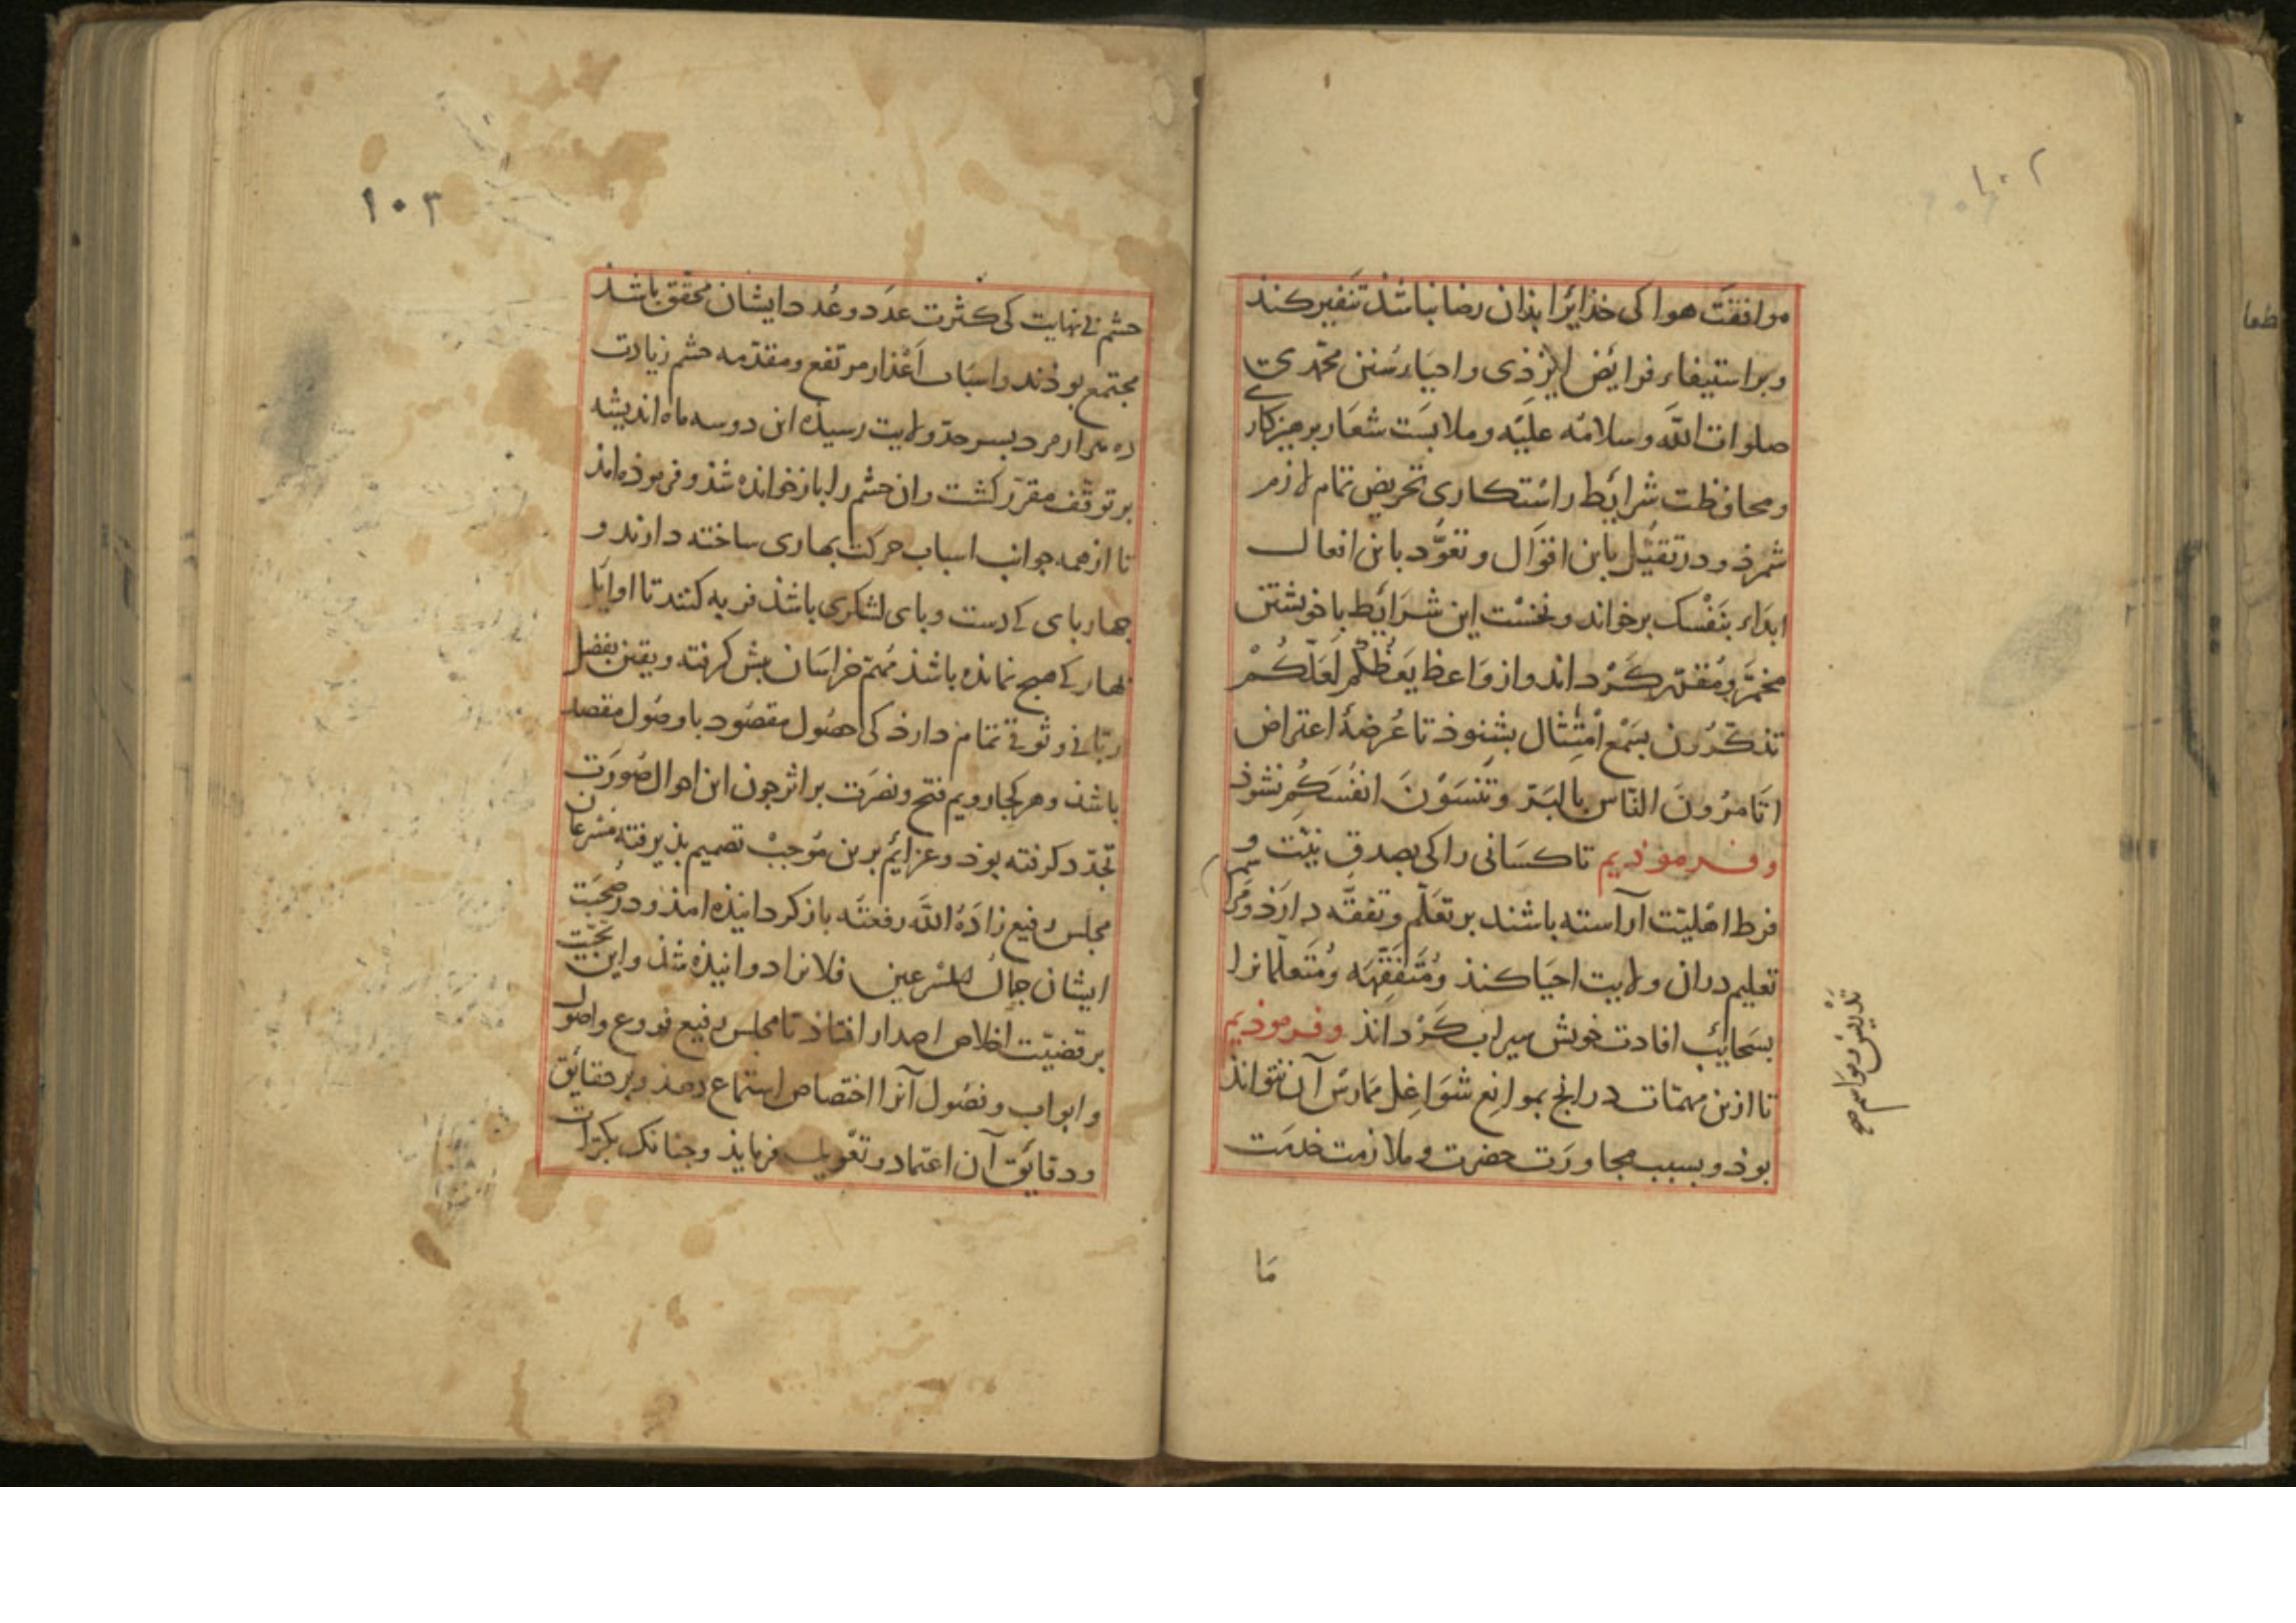 موافقت هوا کی خذایرا بذان رضا نباشذ تنفیر کنذ
و بر استیفاء فرایض ایزذی و احیاء سنن محمدی
صلوات الله و سلامه علیه و ملابست شعار برهیزکاری
و محافظت شرایط راستکاری تحریض تمام لازم
شمرذ و در تقیل باین اقوال و تعوّد باین افعال
ابداء بنفسک برخواند و نخست این شرایط با خویشتن
مخمّر و مقرّر کرداند و از مواعظ یعظکم لعلکم
تذکّرون بسمع امتثال بشنوذ تا عرضهٔ اعتراض
اتامرون الناس بالبرّ و تنسون انفسکم نشوذ
و فرموذیم تا کسانی را کی بصدق نیّت و
فرط اهلیّت آراسته باشند بر تعلّم و تفقّه دارذ و
تعلیم در ان ولایت احیا کنذ و متفقهه و متعلمانرا
بسحایب افادت خویش سیراب کرداند و فرموذیم
تا ازین مهمّات درانج بموانع شواغل ممارس آن نتواند
بوذ و بسبب مجاورت حضرت و ملازمت خدمت
تدریس در مواسم صح
مَا
۱۰۳
حشم بی نهایت کی کثرت عدد و عُدد ایشان محقق باشذ
مجتمع بوذند و اسباب اعذار مرتفع و مقدّمه حشم زیادت
ده هزار مرد بسر حدّ ولایت رسیذه این دو سه ماه اندیشه
بر توقّف مقرّر کشت و ان حشم را باز خوانده شذ و فرموذه امذ
تا از همه جوانب اسباب حرکت بهاری ساخته دارند و
جهاربای کی دست و بای لشکری باشذ فربه کنند تا اوایل
بهار کی هیچ نمانده باشذ مهمّ خراسان بیش کرفته و یقین بفضل
ربّانی و ثوقی تمام دارذ کی حصول مقصود با وصول مقصد
باشذ و هر کجا رویم فتح و نصرت بر اثر جون این احوال صورت
تجدّد کرفته بوذ و عزایم برین موجب تصمیم بذیرفته مسرعان
مجلس رفیع زاده الله رفعته باز کردانیذه امذ و در صحبت
ایشان جمال المسرعین فلانرا دوانیذه شذ و این تحیّت
بر قضیّت اخلاص اصدار افتاذ تا مجلس رفیع فروع و اصول
و ابواب و فصول آنرا اختصاص استماع دهذ و بر حقایق
و دقایق آن اعتماد و تعویل فرمایذ و جنانک بکرّات